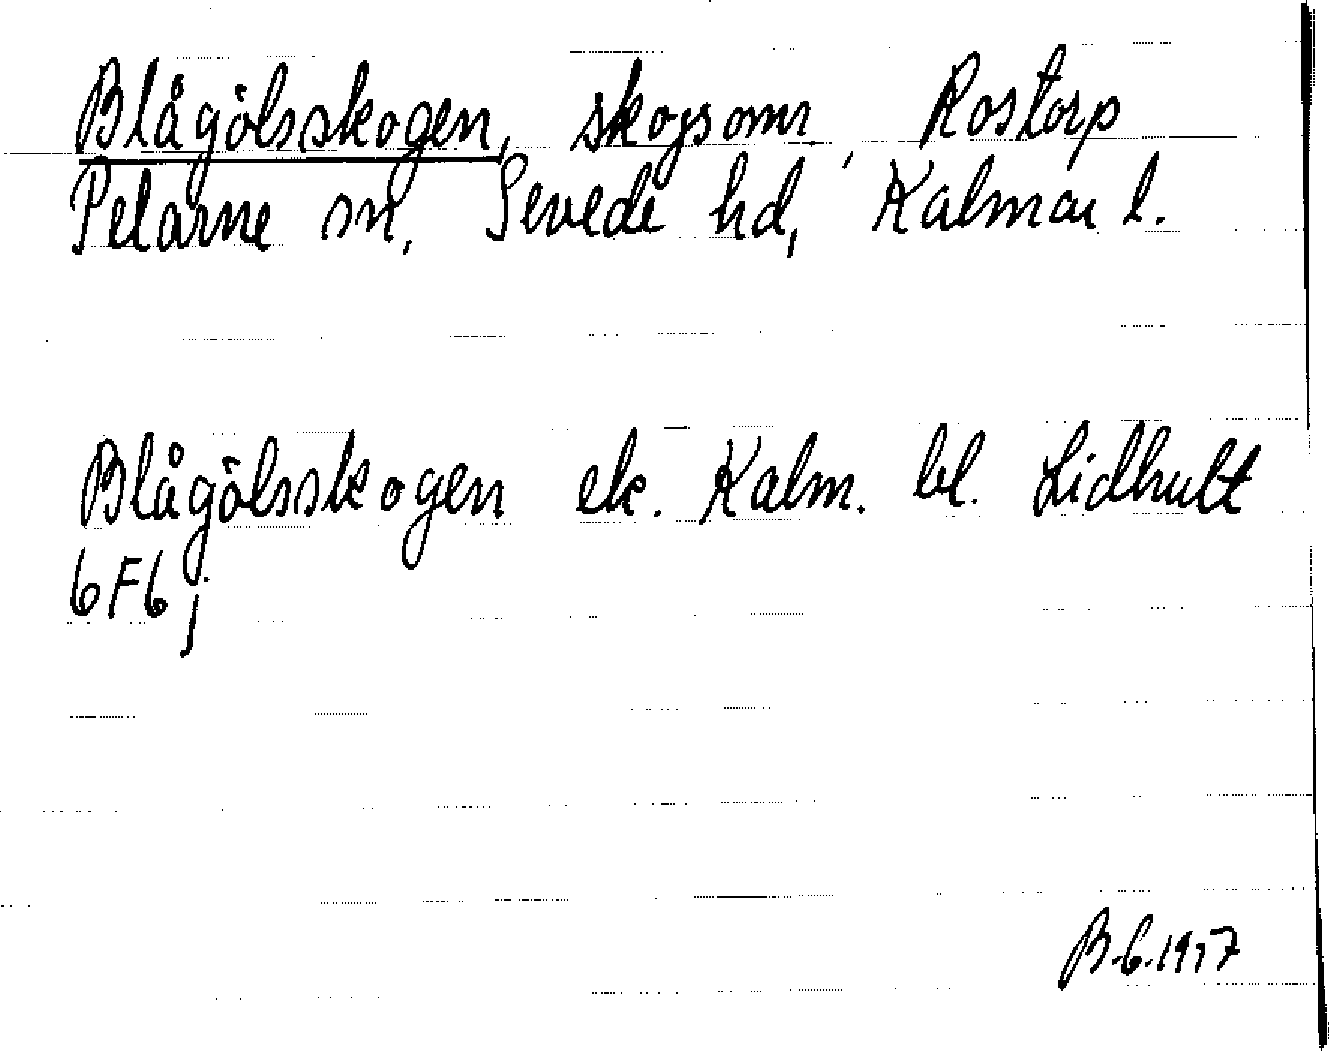 Blågölsskogen, skogsomr, Rostorp
Pelarne sn, Sevede hd, Kalmar l.
Blågölsskogen ek. Kalm. bl. Lidhult
6F6;
B.G.1957